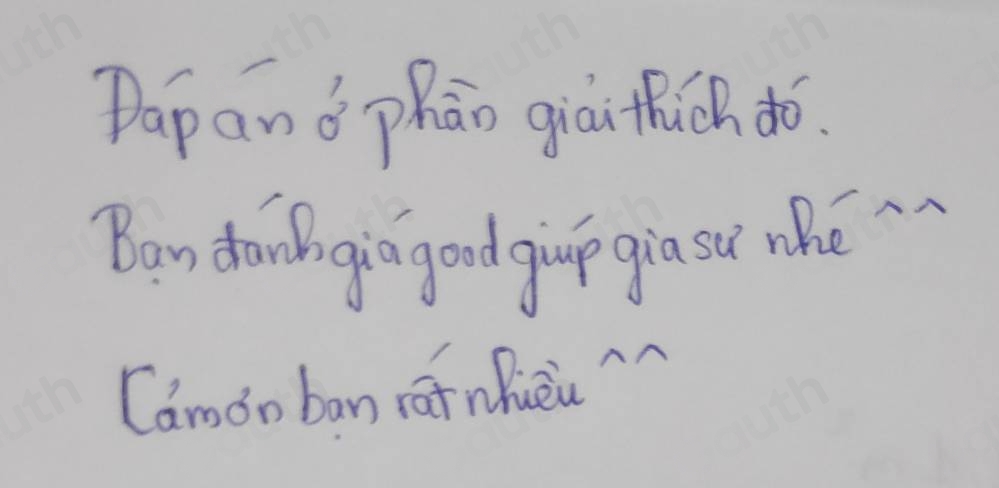 Đáp án ở phần giải thích đó.
Bạn đánh giá good giúp gia sư nhé ^^
Cảm ơn bạn rất nhiều ^^